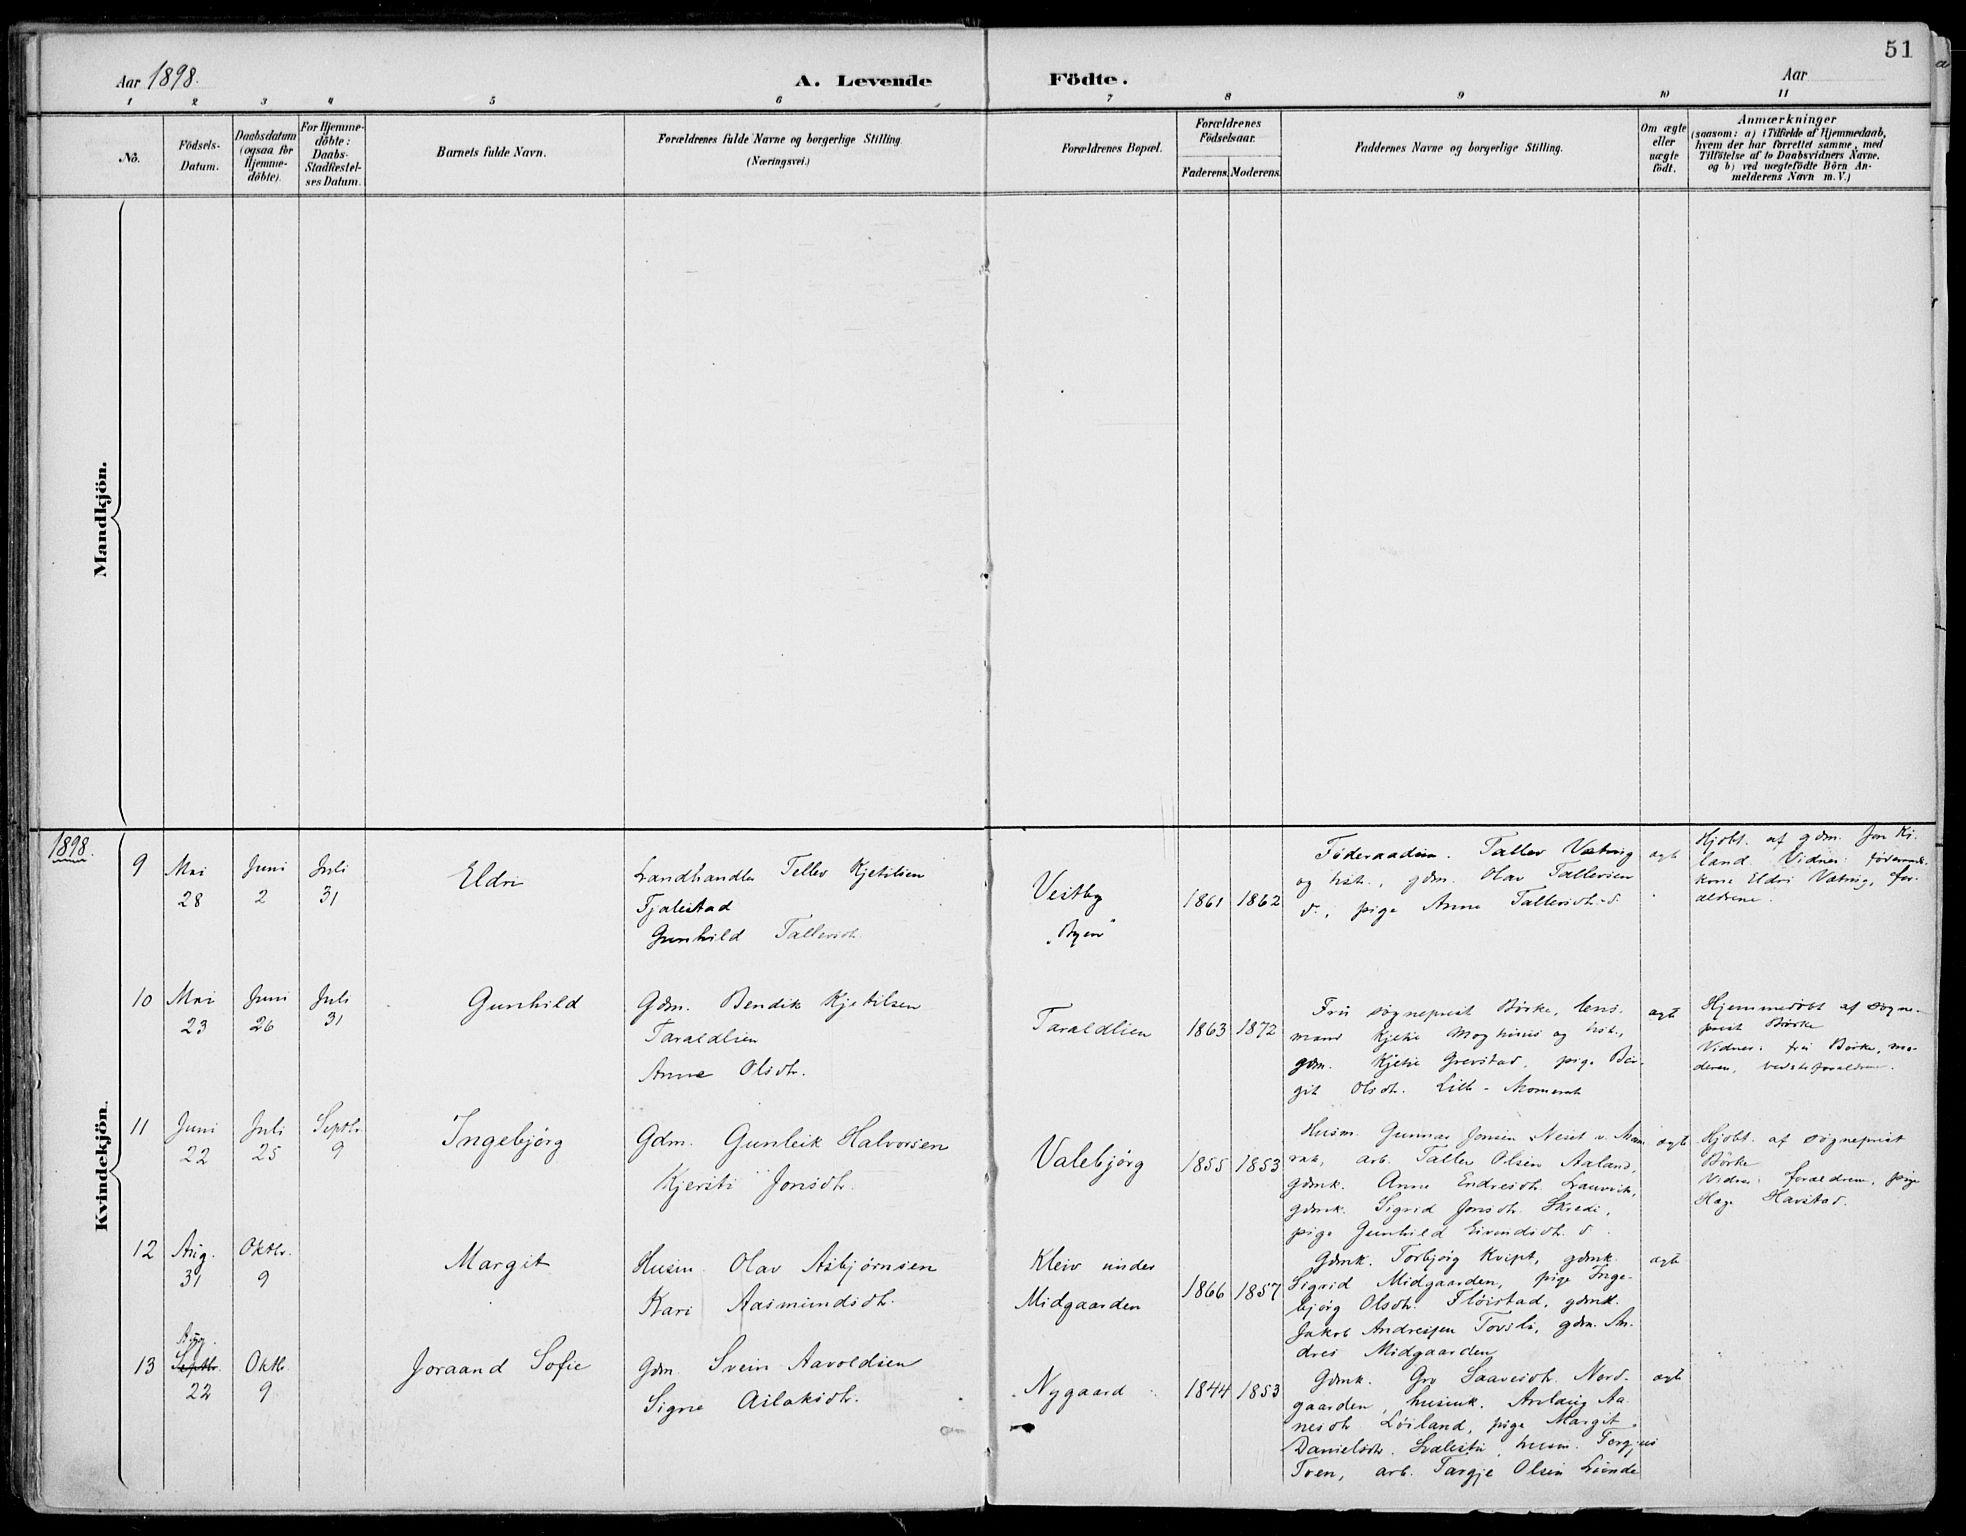 51
Aar 1898.
A. Levende Födte.
Aar
1 2 3 4 5 6 7 8 9 10 11
No.
Födsels-
Datum.
Daabsdatum
(ogsaa for
Hjemme-
döbte).
For Hjemme-
döbte:
Daabs-
Stadfæstel-
ses Datum.
Barnets fulde Navn.
Forældrenes fulde Navne og borgerlige Stilling
(Næringsvei.)
Forældrenes Bopæl.
Forældrenes
Födselsaar.
Faderens. Moderens.
Faddernes Navne og borgerlige Stilling.
Om ægte
eller
uægte
födt.
Anmærkninger
(saasom: a) i Tilfælde af Hjemmedaab,
hvem der har forrettet samme, med
Tilföielse af to Daabsvidners Navne.
og b) ved uægtefödte Börn An-
melderens Navn m.V.)
Mandkjön.
Kvindekjön.
1898.
9
Mai
28
Juni
2
Juli
31
Eldri
Landhandler Tellev Kjetilsen
Fjalestad
Gunhild Tallevsdtr.
Vestby
"Byen"
1861 1862
Föderaadsm. Tallev Vatnig
og hst., gdm. Olav Tallevsen
d., pige Anne Tallevsdtr. d.
ægte
Hjdbt. af gdm. Jon Ki-
land. Vidner:
kone Eldri Vatnig, for-
ældrene.
10
Mai
23
Juni
26
Juli
31
Gunhild
Gdm. Bendik Kjetilsen
Taraldlien
Anne Olsdtr.
Taraldlien
1863 1872
Frú sogneprest Börke, lens-
mand Kjetil Moghus og hst.,
gdm. Kjetil Grevstad, pige Bir-
git Olsdtr. Lille-
ægte
Hjemmedöbt af sogne-
prest Börke
Vidner: frú Börke, mo-
deren,
11
Juni
22
Juli
25
Septbr.
9
Ingebjörg
Gdm. Gunleik Halvorsen
Kjersti Jonsdtr.
Valebjörg
1855 1853
Husm. Gunnar Jonsen
arb. Tallev Olsen Aaland,
gdmk. Anne Endresdtr. Lauvvik,
gdmk. Sigrid Jonsdtr. Skredi,
pige Gunhild Eivindsdtr. d.
ægte
Hjdbt. af sogneprest
Börke
Vidner: forældrene, pige
Hæge Havstad.
12
Aug.
31
Oktbr.
9
Margit
Husm. Olav Asbjørnsen
Kari Aasmundsdtr.
Kleiv under
Midgaarden
1866 1857
Gdmk. Torbjørg Kvipt, gdmk.
Sigrid Midgaarden, pige Inge-
björg Olsdtr. Flöistad, gdmk.
Jakob Andresen Tovsli, gdm. An-
dres Midgaarden
ægte
13
Aug.
Septbr.
22
Oktbr.
9
Joraand Sofie
Gdm Svein Aavoldsen
Signe Aslaksdtr.
Nygaard
1844 1853
Gdmk. Gro Saavesdtr. Nord-
gaarden, husmk. Aslaug Aa-
nesdtr. Löiland, pige Margit
Danielsdtr. husm. Torgjus
Tven, arb. Targje Olsen Lunde
ægte